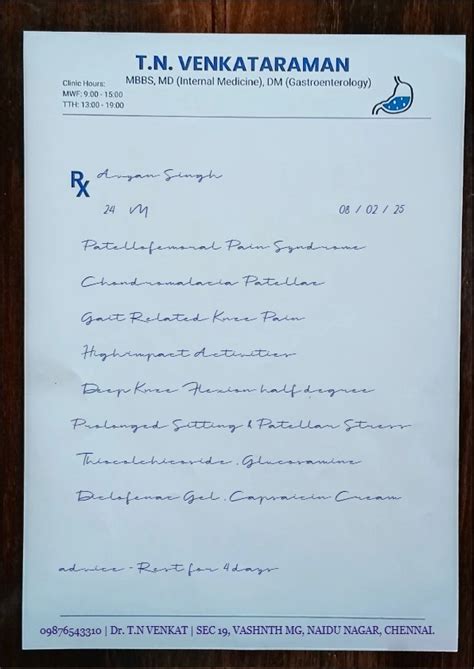 T.N. VENKATARAMAN
MBBS, MD (Internal Medicine), DM (Gastroenterology)
Clinic Hours:
MWF: 9:00 - 15:00
TTH: 13:00 - 19:00
Rx Aryan Singh
24 M 08 / 02 / 25
Patellofemoral Pain Syndrome
Chondromalacia Patellae
Gait Related Knee Pain
High impact Activities
Deep Knee Flexion half degree
Prolonged Sitting & Patellar Stress
Thiocolchicoside . Glucosamine
Diclofenac Gel . Capsaicin Cream
advice - Rest for 4 days
09876543310 | Dr. T.N VENKAT | SEC 19, VASHNTH MG, NAIDU NAGAR, CHENNAI.